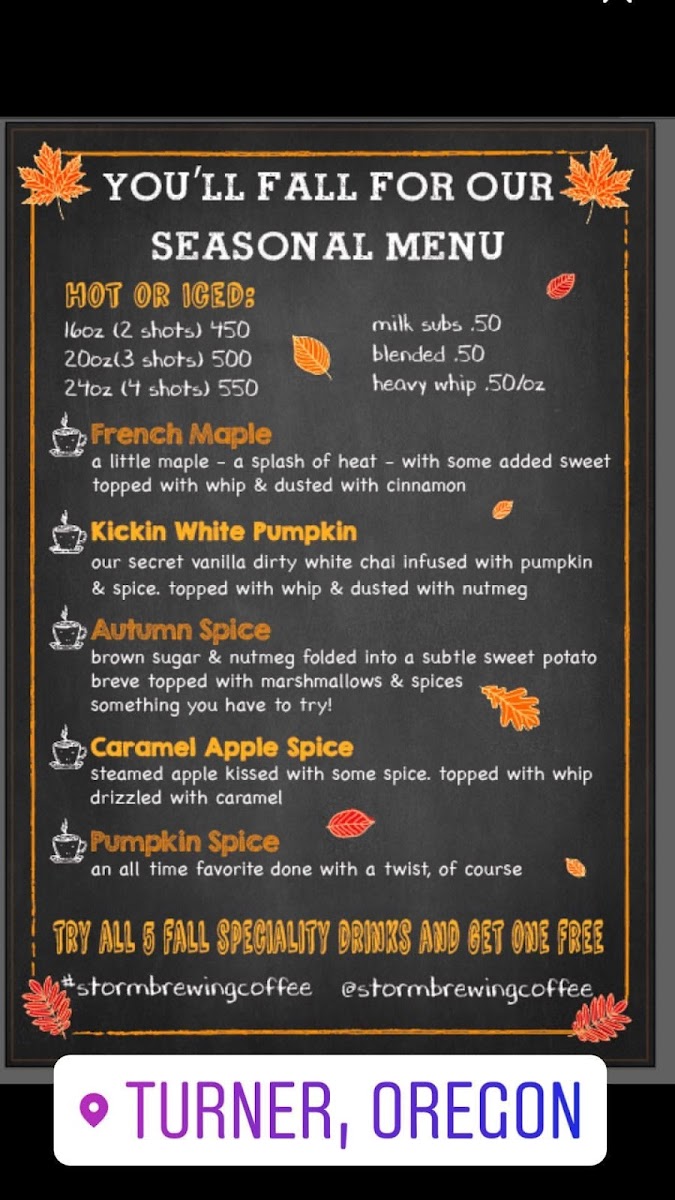 YOU'LL FALL FOR OUR
SEASONAL MENU
HOT OR ICED:
16oz (2 shots) 450
20oz(3 shots) 500
24oz (4 shots) 550
milk subs .50
blended .50
heavy whip .50/oz
French Maple
a little maple - a splash of heat - with some added sweet
topped with whip & dusted with cinnamon
Kickin White Pumpkin
our secret vanilla dirty white chai infused with pumpkin
& spice. topped with whip & dusted with nutmeg
Autumn Spice
brown sugar & nutmeg folded into a subtle sweet potato
breve topped with marshmallows & spices
something you have to try!
Caramel Apple Spice
steamed apple kissed with some spice. topped with whip
drizzled with caramel
Pumpkin Spice
an all time favorite done with a twist, of course
TRY ALL 5 FALL SPECIALITY DRINKS AND GET ONE FREE
#stormbrewingcoffee @stormbrewingcoffee
TURNER, OREGON